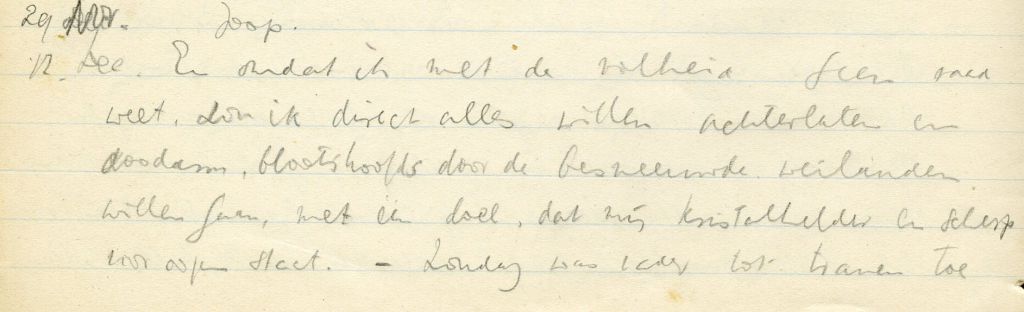 29 Nov. Joop.
12. Dec. En omdat ik met de volheid geen raad
weet, zou ik direct alles willen achterlaten en
doodarm, blootshoofds door de besneeuwde weilanden
willen gaan, met een doel, dat mij kristalhelder en scherp
voor oogen staat. – Zondag was vader tot tranen toe